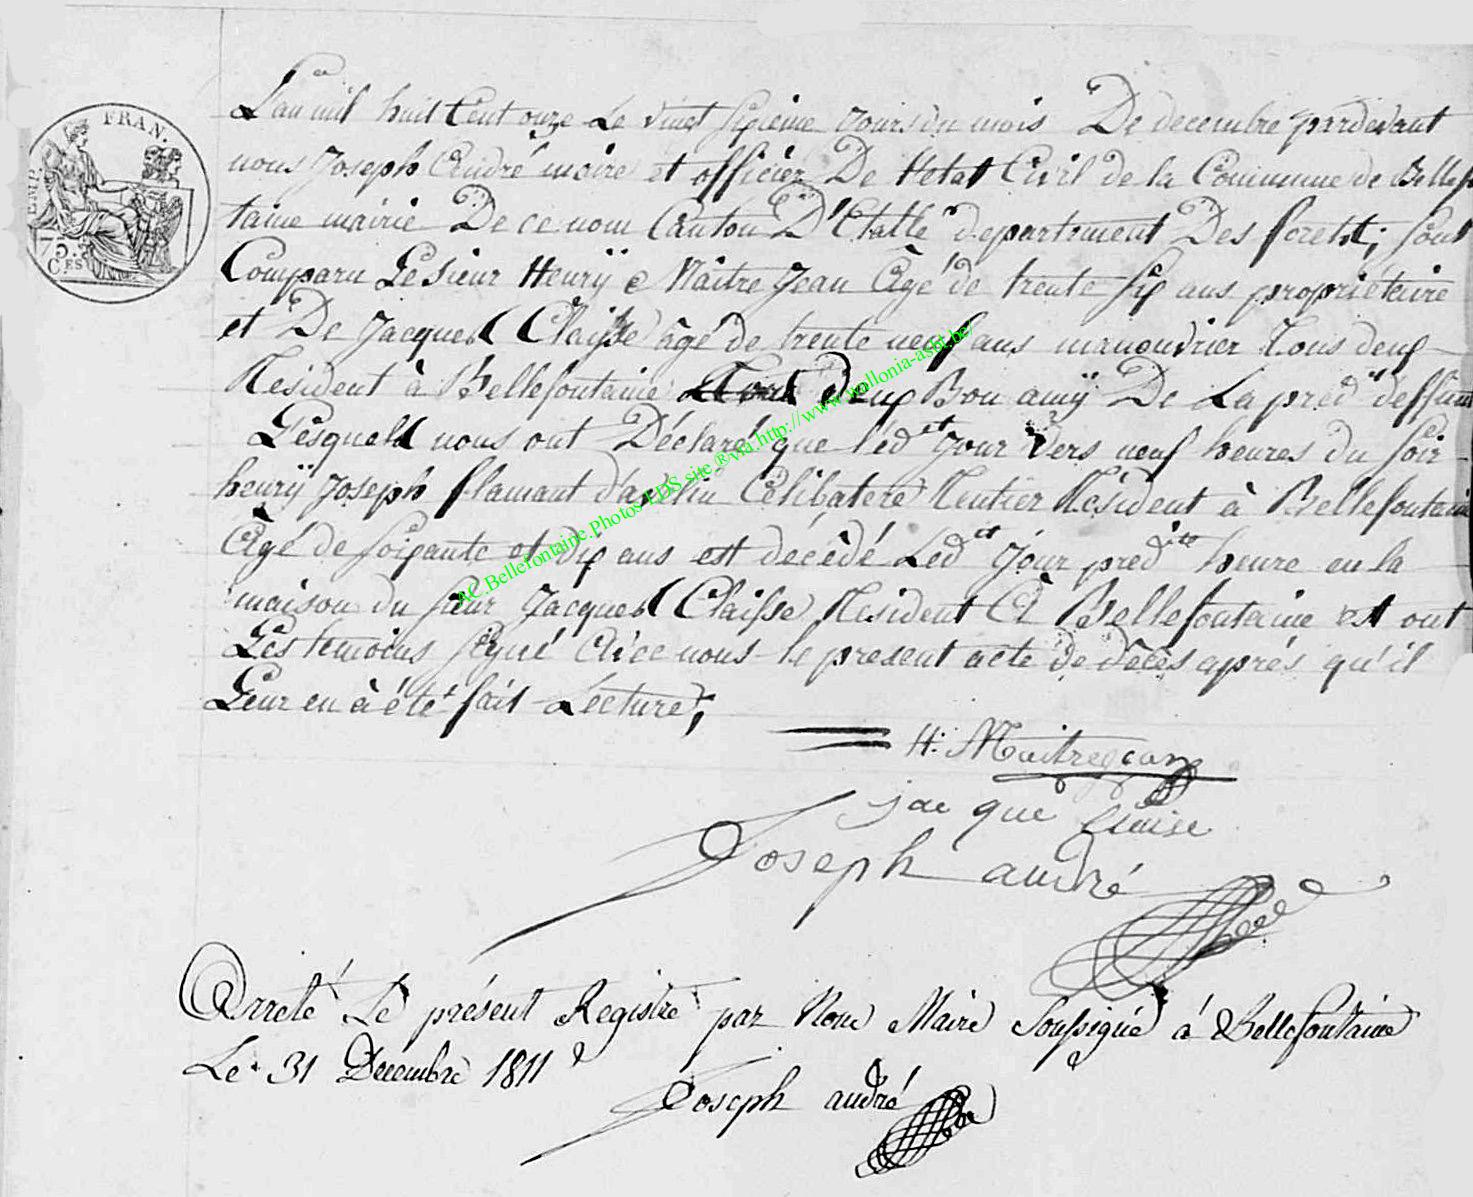 EMP. FRAN.
75. CES
L'an mil huit Cent onze Le vinet sixième Jours du mois De decembre pardevant
nous Joseph André maire et officier De l'état Civil de la Commune de Bellefo
taine mairie De ce nom Canton D'Etalle departement Des forets; sont
Comparu Le sieur Henrÿ Maitre Jean Agé de trente six ans propriétaire
et De Jacques Claisse agé de trente neuf ans manouvrier tous deux
Resident à Bellefontaine deux Bon amÿ De La pred deffunt
Lesquels nous ont Déclaré que led et Jour vers neuf heures du soir
henrÿ Joseph flamant Célibatere Rentier Résident à Bellefontaine
Agé de soixante et dix ans est décédé Led et Jour pred ite heure en la
maison du sieur Jacques Claisse Resident à Bellefontaine et ont
Les temoins signé avec nous le present acte de décès après qu'il
Leur en à été fait Lecture;
H: Maitrejean
jac que Claise
Joseph andré
Arreté Le présent Registre par Nous Maire Soussigné à Bellefontaine
Le 31 Decembre 1811
Joseph andré
AC.Bellefontaine.Photos EDS.site ® via http://www.wallonia-asbl.be/